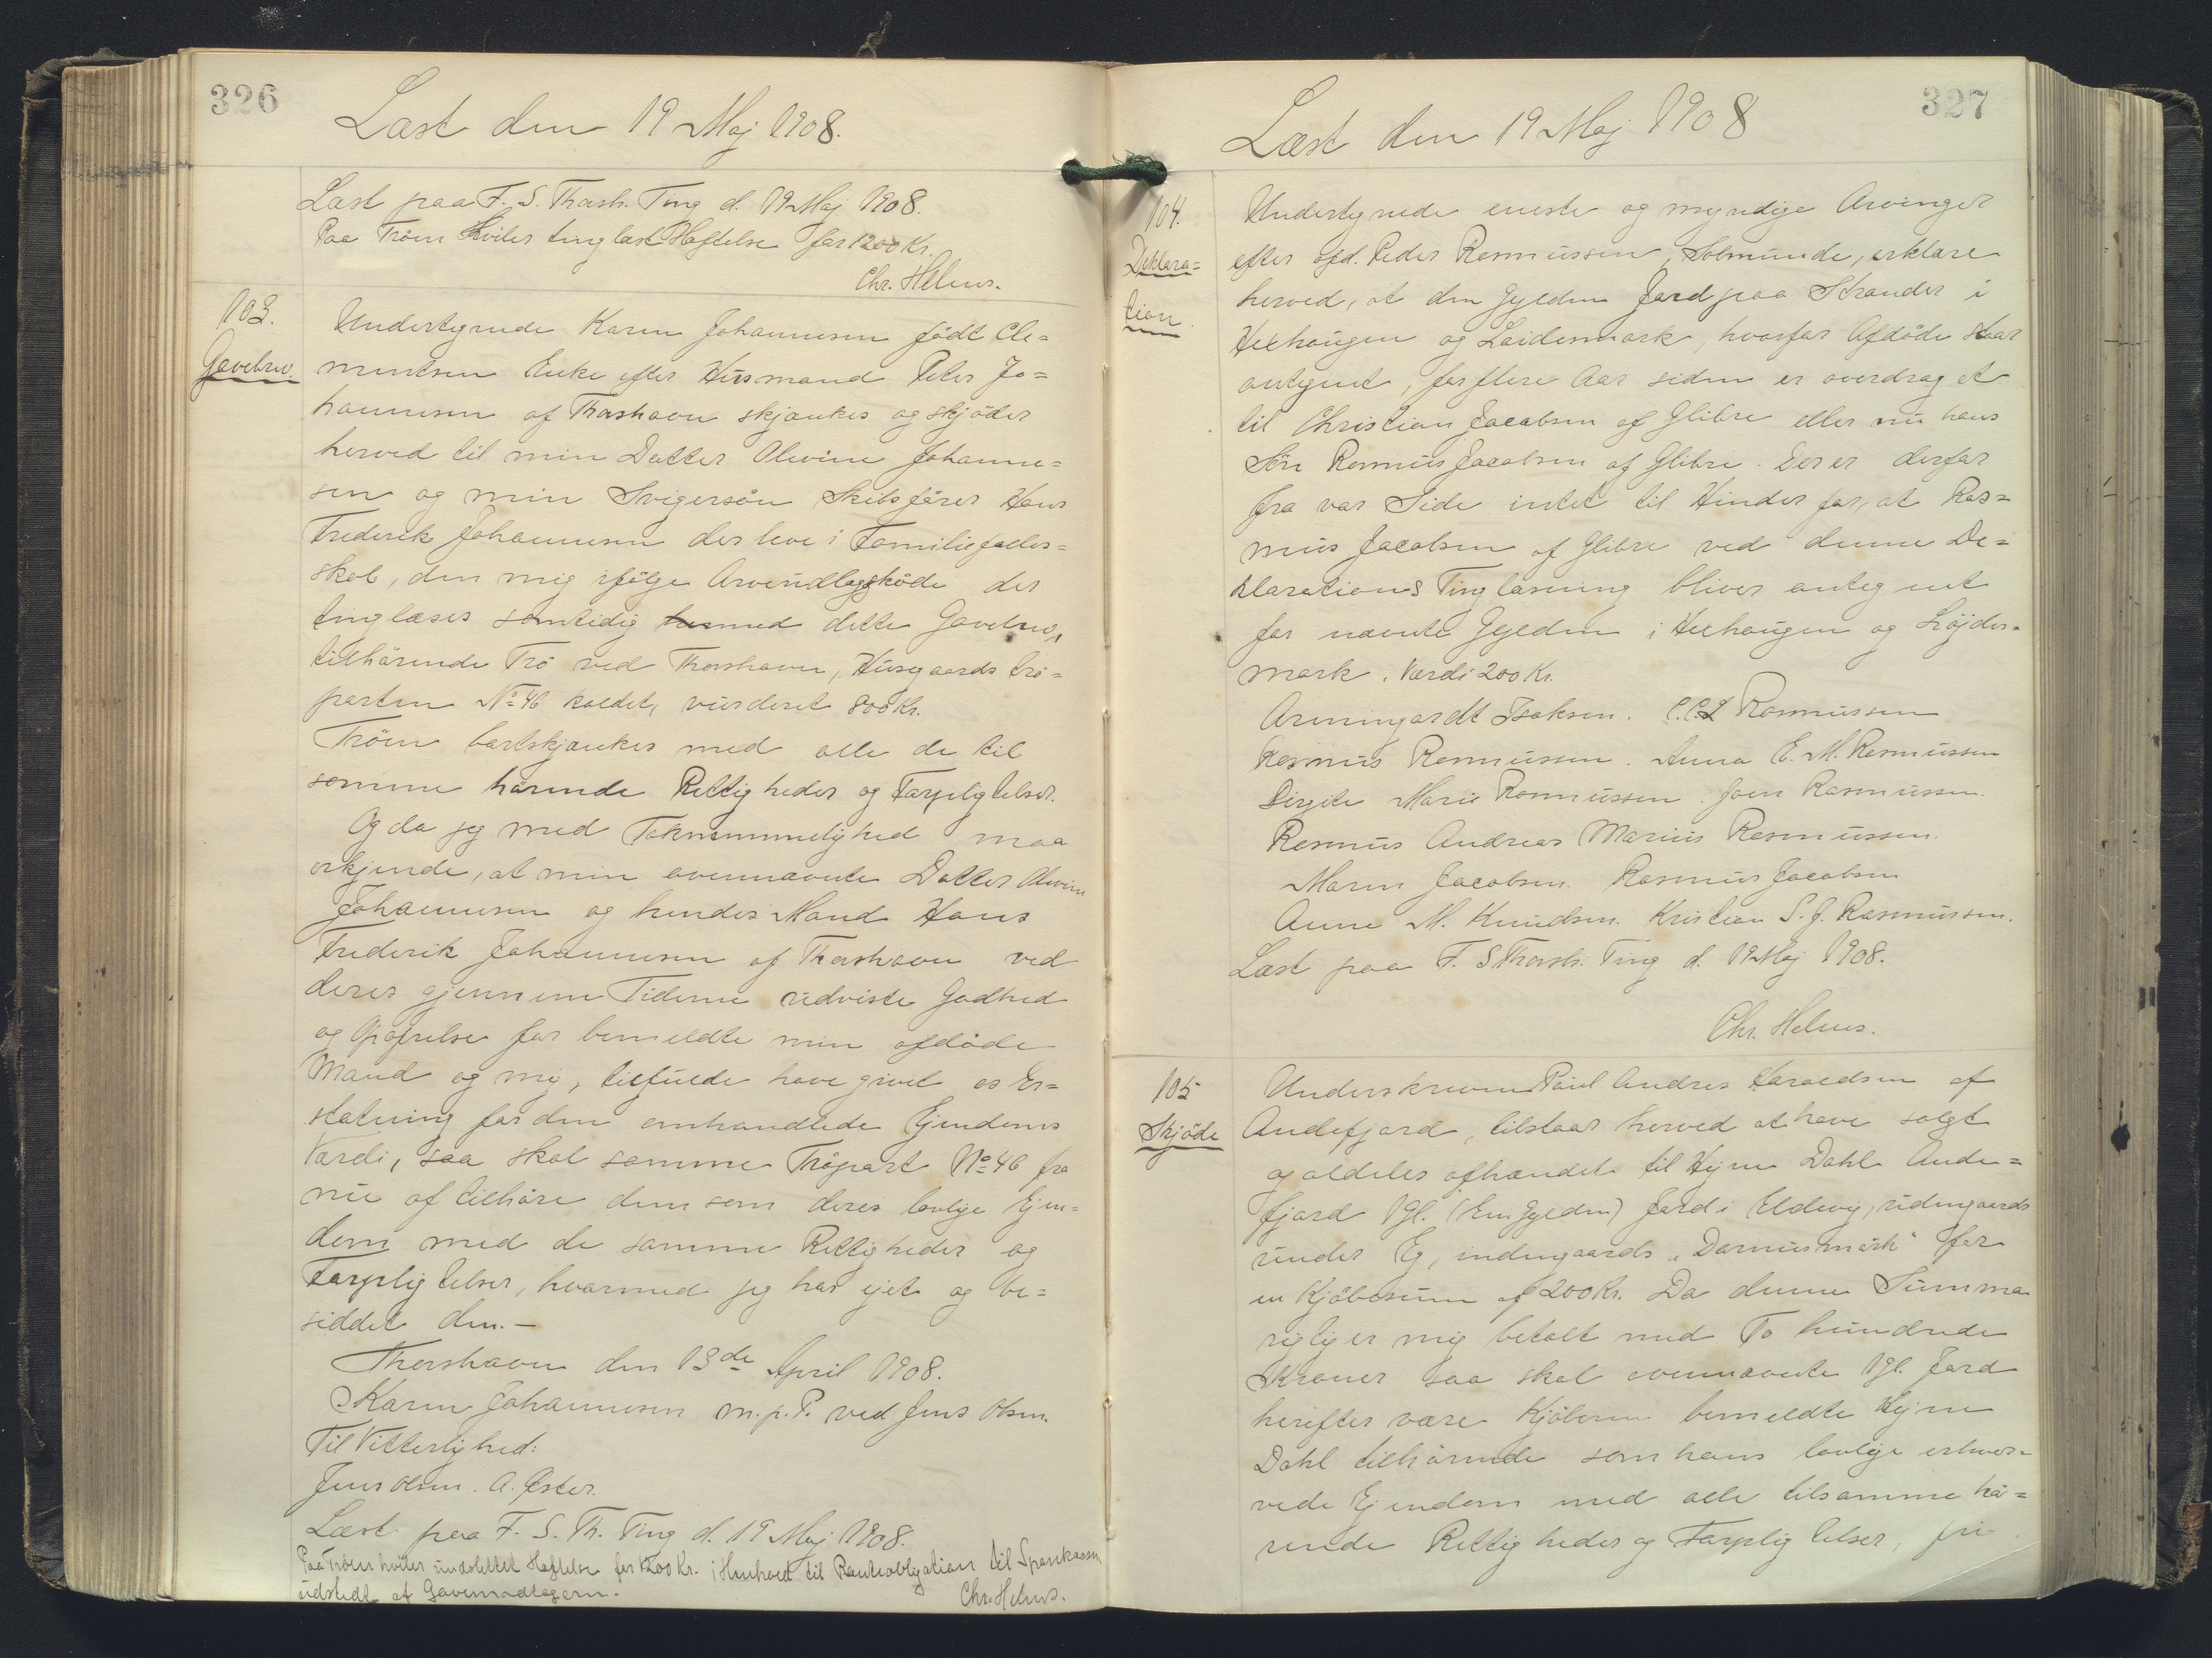 326
Læst den 19 Maj 1908.
Læst paa F. S. Thorsh. Ting d. 19 Maj 1908.
Paa Tröen hviler tinglæst Hæftelse for 1200 Kr.
Chr. Helms.
103.
Gavebrev.
Undertegnede Karen Johannesen födt Cle=
mentsen Enke efter Husmand Peter Jo=
hannesen af Thorshavn skjænkes og skjöder
herved til min Datter Olevine Johanne=
sen og min Svigersön Skibsförer Hans
Frederik Johannesen der leve i Familiefælles=
skab, den mig ifölge Arveudlægsskøde der
tinglæses samtidig med dette Gavebrev,
tilhörende Trö ved Thorshavn, Husgaards trö=
parten No 46 kaldet, vurderet 800 Kr.
Tröen bortskjænkes med alle de til
samme hörende Rettigheder og Forpligtelser.
Og da jeg med Taknemmelighed maa
erkjende, at min ovennævnte Datter Olevine
Johannesen og hendes Mand Hans
Frederik Johannesen af Thorshavn ved
deres gjennem Tiderne udviste Godhed
og Opofrelse for bemeldte min afdöde
Mand og mig, tilfulde have givet os Er=
statning for den omhandlede Ejendoms
Værdi, saa skal samme Tröpart No 46 fra
nu af tilhöre dem som deres lovlige Ejen=
dom med de samme Rettigheder og
Forpligtelser, hvormed jeg har ejet og be=
siddet den.—
Thorshavn den 13de April 1908.
Karen Johannesen m. p. P. ved Jens Olsen.
Til Vitterlighed:
Jens Olsen. A. Øster.
Læst paa F. S. Th. Ting d. 19 Maj 1908.
Paa Tröen hviler uudslettet Hæftelse for 1200 Kr. i Henhold til Panteobligation til Sparekassen
udstedt af Gavemodtageren.
Chr. Helms.
327
Læst den 19 Maj 1908
104.
Deklara=
tion.
Undertegnede eneste og myndige Arvinger
efter afd. Peder Rasmussen, Solmunde, erklære
herved, at den Gylden Jord paa Strander i
Heehaugen og Loidesmark, hvorfor Afdöde staar
antegnet, for flere Aar siden er overdraget
til Christian Jacobsen af Glibre eller nu hans
Sön Rasmus Jacobsen af Glibre. Der er derfor
fra vor Side intet til Hinder for, at Ras=
mus Jacobsen af Glibre ved denne De=
klarations Tinglæsning bliver antegnet
for nævnte Gylden i Heehaugen og Löjdes=
mark. Værdi 200 Kr.
Armingardt Isaksen. C.C.L Rasmussen
Rasmus Rasmussen. Anna E. M. Rasmussen
Birgite Marie Rasmussen. Joen Rasmussen.
Rasmus Andreas Marius Rasmussen.
Maren Jacobsen. Rasmus Jacobsen
Anne M. Knudsen. Kristian S. J. Rasmussen.
Læst paa F. S Thorsh. Ting d. 19 Maj 1908.
Chr. Helms.
105
Skjöde
Underskrevne Paul Andres Haraldsen af
Andefjord, tilstaar herved at have solgt
og aldeles afhændet til Hejne Dahl Ande=
fjord 1 Gl. (Een Gylden) Jord i Eldevig, udengaards
under Eg, indengaards „Darnusmörk" for
en Kjöbesum af 200 Kr. Da denne Summa
rigtig er mig betalt med To hundrede
Kroner saa skal ovennævnte 1 Gl. Jord
herefter være Kjöberen bemeldte Hejne
Dahl tilhörende som hans lovlige erhver=
vede Ejendom med alle tilsamme hö=
rende Rettigheder og Forpligtelser, fri